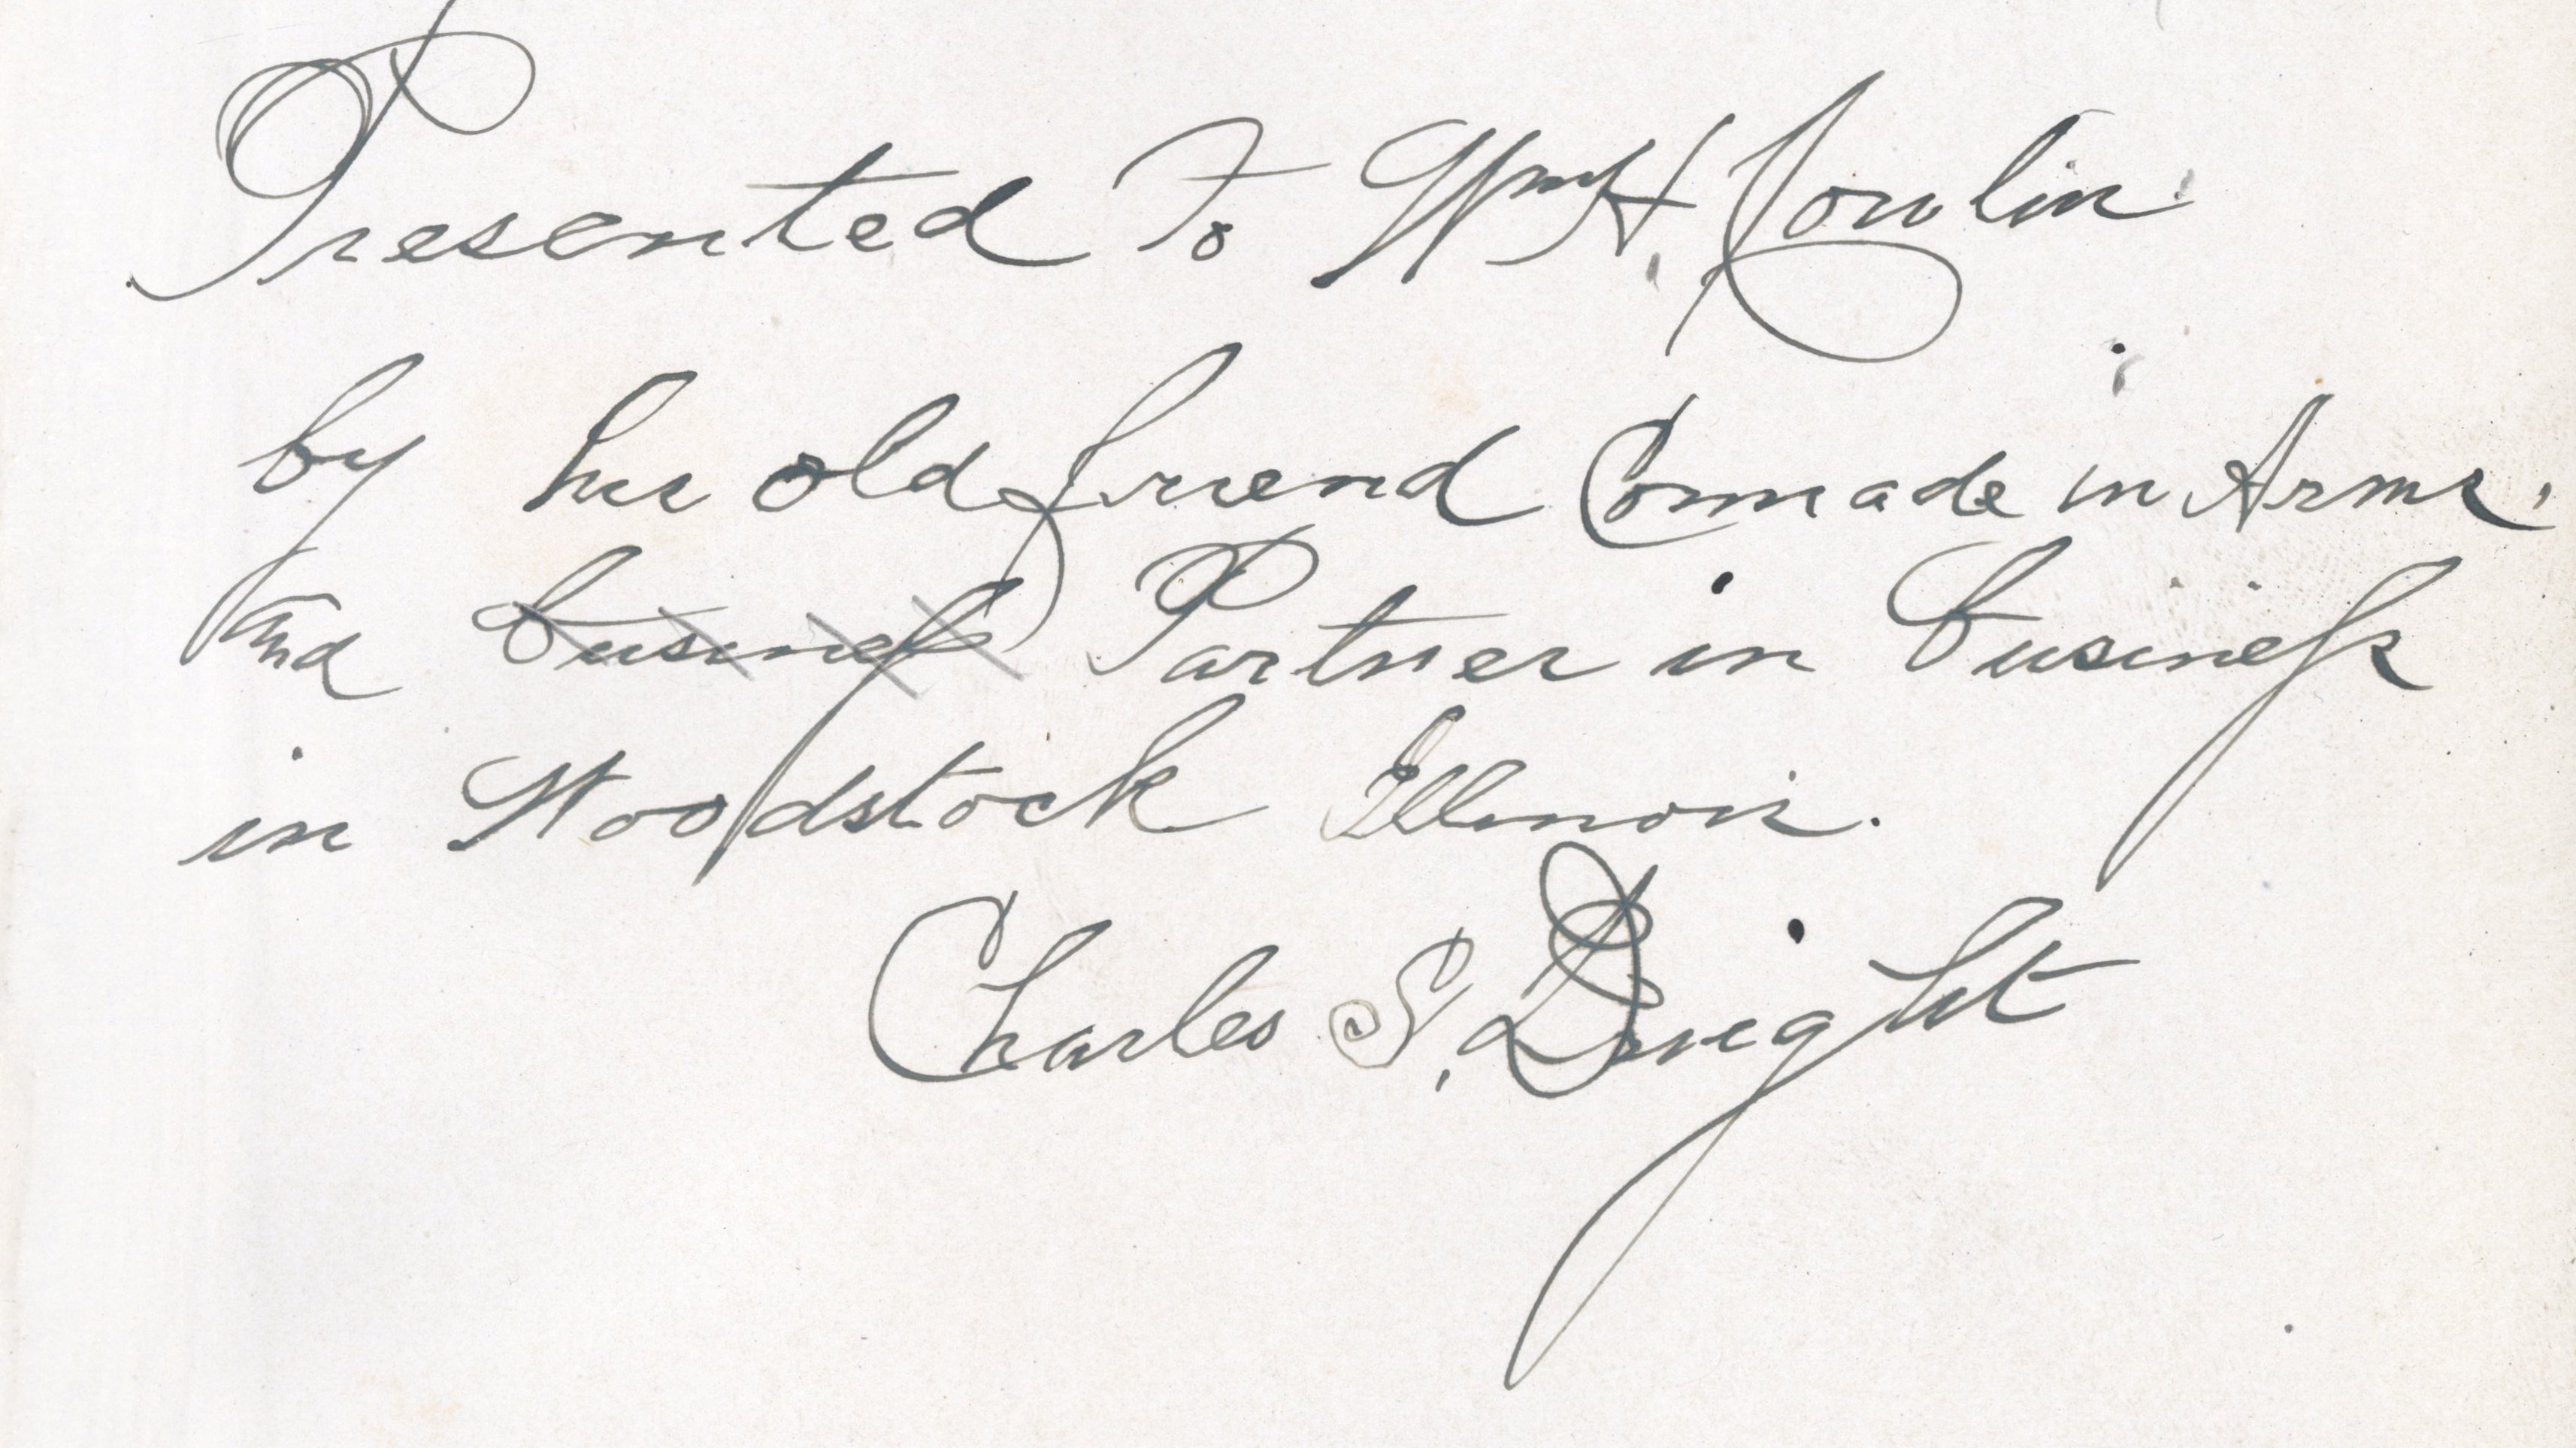 Presented To Wm H.
by his old friend Comrade in Arms.
and business Partner in business
in Woodstock Illinois.
Charles S. Dwight